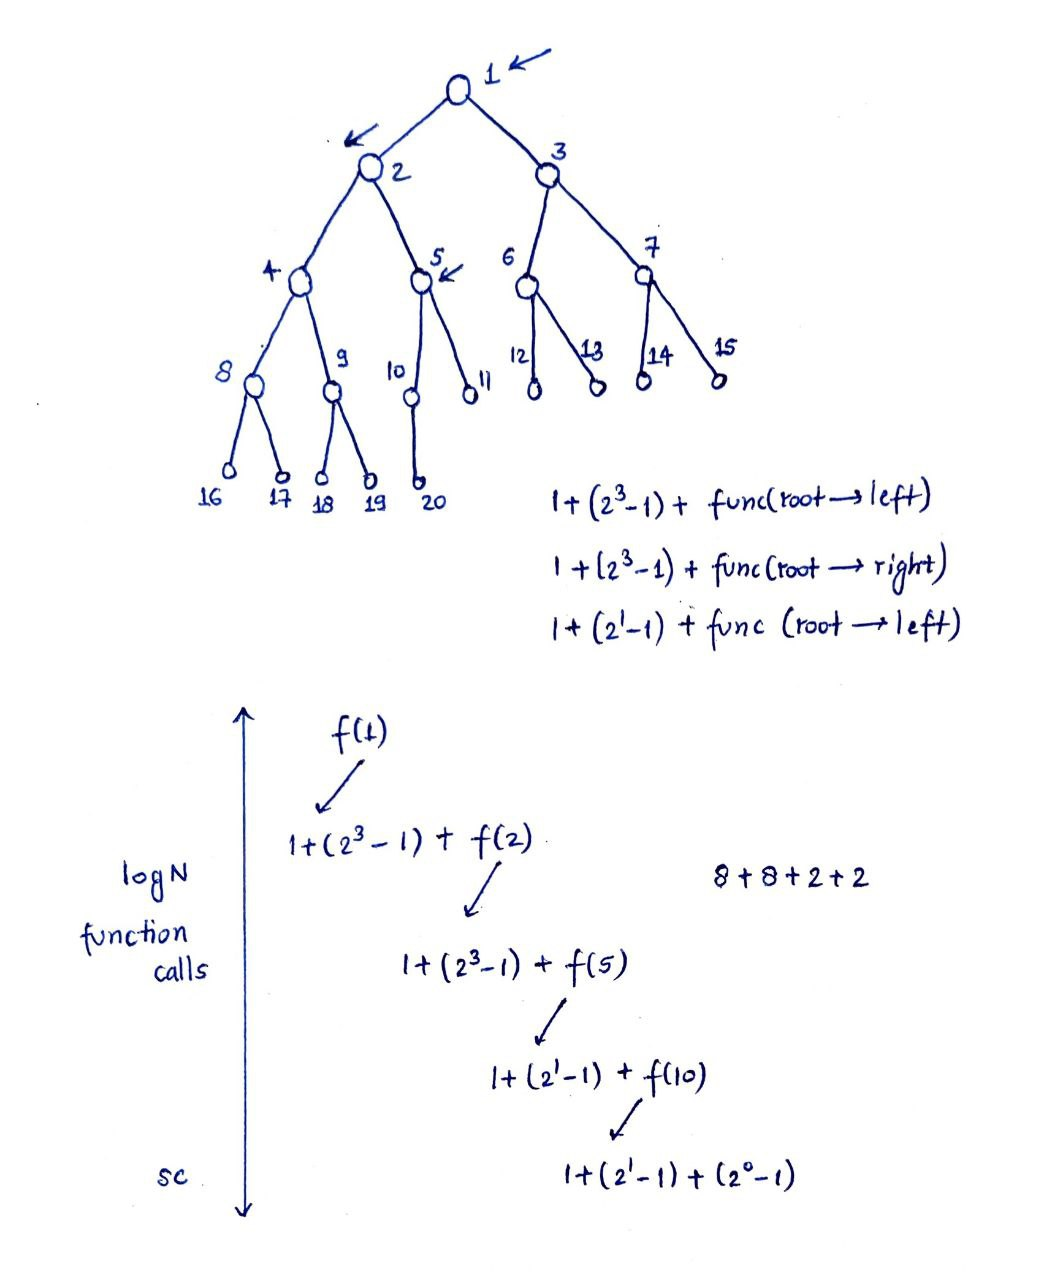 1
2
3
4
5
6
7
8
9
10
11
12
13
14
15
16
17
18
19
20
1+(2³-1)+ func(root→left)
1+(2³-1)+ func(root→right)
1+(2¹-1)+ func (root→left)
f(1)
1+(2³-1)+ f(2)
logN
function
calls
8+8+2+2
1+(2³-1)+ f(5)
1+(2¹-1)+ f(10)
SC
1+(2¹-1)+(2⁰-1)